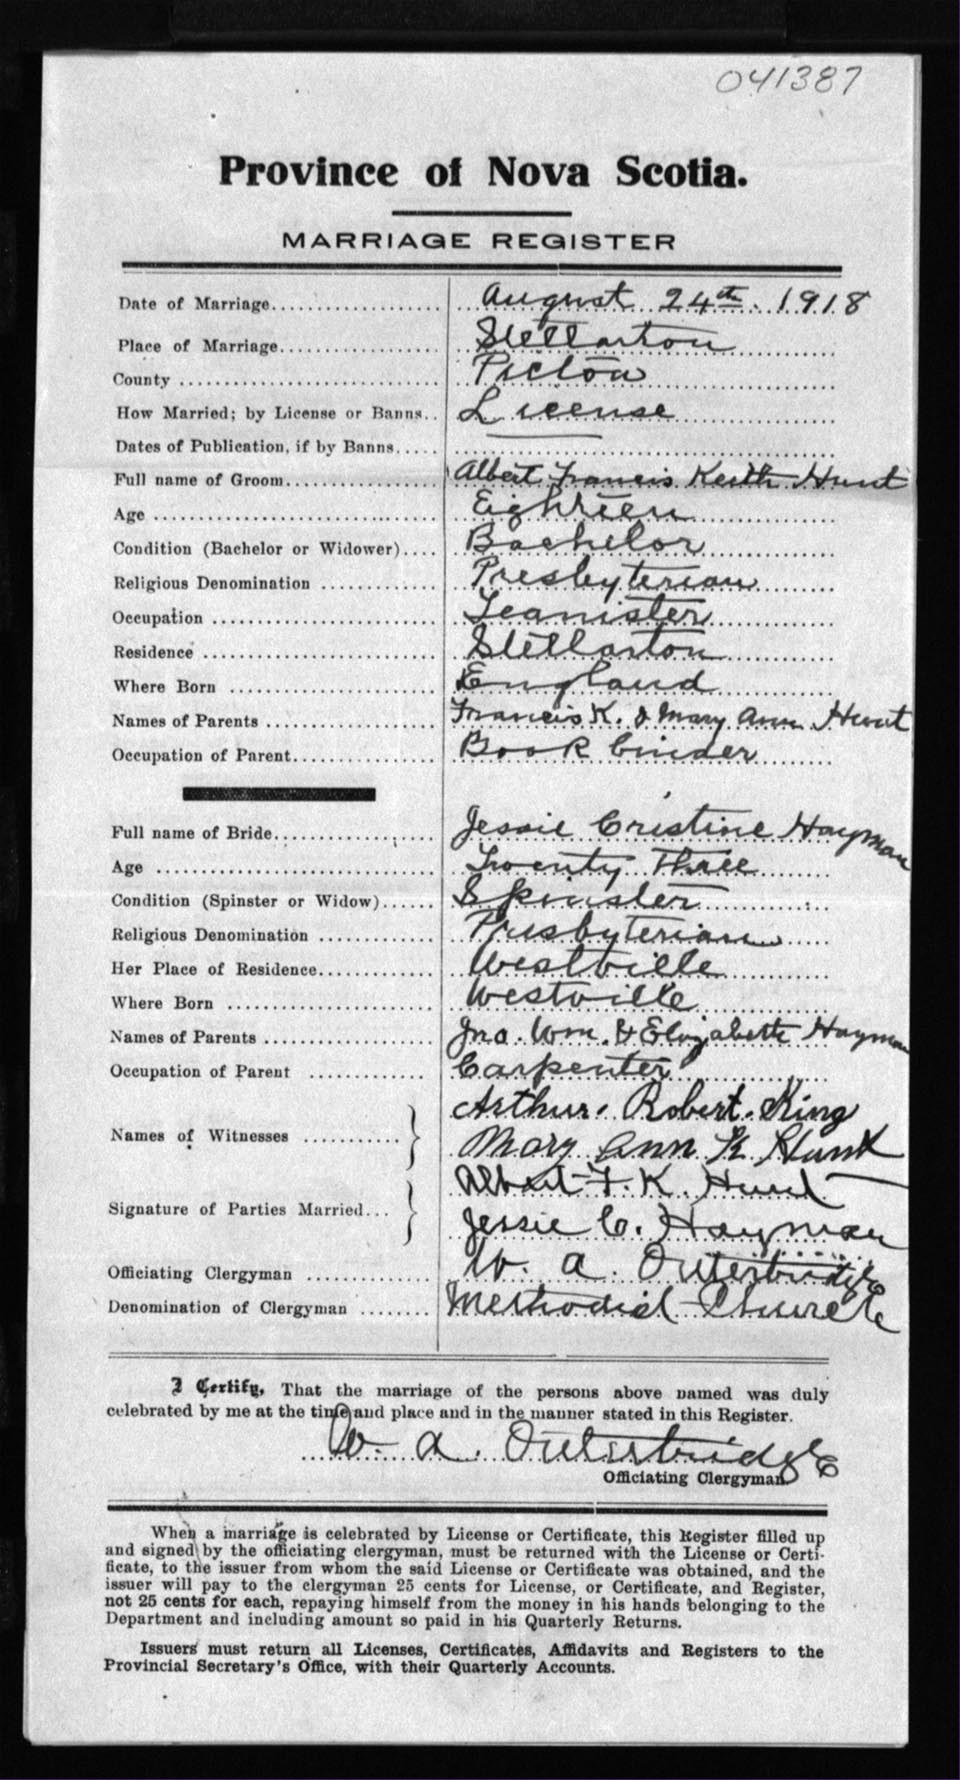 041387
Province of Nova Scotia.
MARRIAGE REGISTER
Date of Marriage.................... August 24th 1918
Place of Marriage................... Stellarton
County .............................. Pictou
How Married; by License or Banns.. License
Dates of Publication, if by Banns.....
Full name of Groom.................. Albert Francis Keith Hunt
Age ................................. Eighteen
Condition (Bachelor or Widower).... Bachelor
Religious Denomination ............. Presbyterian
Occupation .......................... Teamister
Residence ........................... Stellarton
Where Born ......................... England
Names of Parents .................... Francis K. & Mary Ann Hunt
Occupation of Parent................. Book binder
Full name of Bride................... Jessie Cristine Hayman
Age ................................. Twenty Three
Condition (Spinster or Widow)...... Spinster
Religious Denomination ............. Presbyterian
Her Place of Residence.............. Westville
Where Born ......................... Westville
Names of Parents .................... Jno. Wm. & Elizabeth Hayman
Occupation of Parent ............. Carpenter
Arthur Robert King
Names of Witnesses ...........
Mary Ann K Hunt
Albert F. K. Hunt
Signature of Parties Married...
Jessie C. Hayman
Officiating Clergyman ............. W. A. Outerbridge
Denomination of Clergyman ........ Methodist Church
I Certify, That the marriage of the persons above named was duly
celebrated by me at the time and place and in the manner stated in this Register.
W. A. Outerbridge
Officiating Clergyman
When a marriage is celebrated by License or Certificate, this Register filled up
and signed by the officiating clergyman, must be returned with the License or Certi-
ficate, to the issuer from whom the said License or Certificate was obtained, and the
issuer will pay to the clergyman 25 cents for License, or Certificate, and Register,
not 25 cents for each, repaying himself from the money in his hands belonging to the
Department and including amount so paid in his Quarterly Returns.
Issuers must return all Licenses, Certificates, Affidavits and Registers to the
Provincial Secretary's Office, with their Quarterly Accounts.